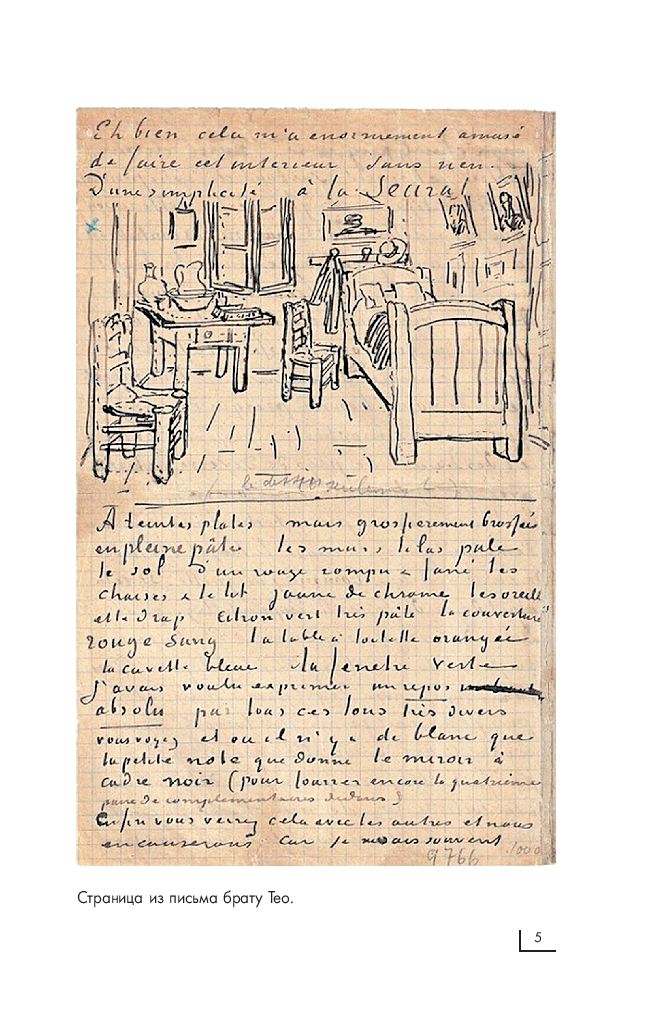 Eh bien cela m'a enormement amusé
de faire cet interieur sans rien.
D'une simplicité à la Seurat
A teintes plates mais grossierement brossées
en pleine pâte les murs lilas pale
le sol d'un rouge rompu & fané les
chaises & le lit jaune de chrome les oreill
et le drap citron vert très pâle la couverture
rouge sang la table à toilette orangée
la cuvette bleue la fenetre verte
J'avais voulu exprimer un repos
absolu par tous ces tons très divers
vous voyez et où il n'y a de blanc que
la petite note que donne le miroir à
cadre noir (pour fourrer encore la quatrième
paire de complementaires dedans)
Enfin vous verrez cela avec les autres et nous
en causerons car je ne sais souvent
9766
Страница из письма брату Тео.
5